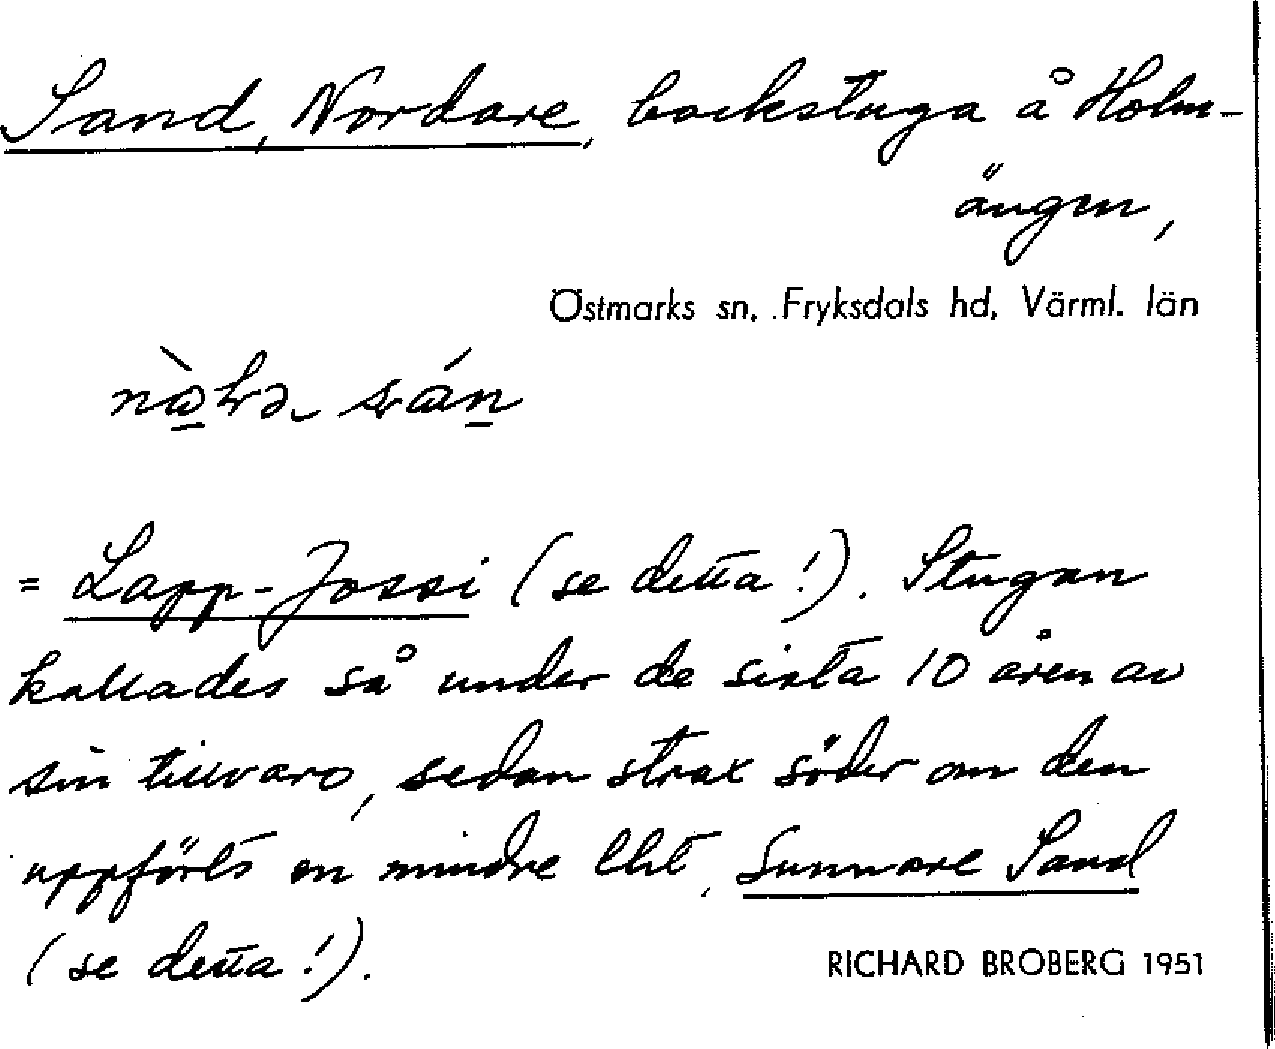 Sand, Nordare, backstuga å Holm-
ängen,
Östmarks sn, Fryksdals hd, Värml. län
= Lapp-Jossi (se detta!). Stugan
kallades så under de sista 10 åren av
sin tillvaro, sedan strax söder om den
uppförts en mindre lht, Sunnare Sand
(se detta!).
RICHARD BROBERG 1951